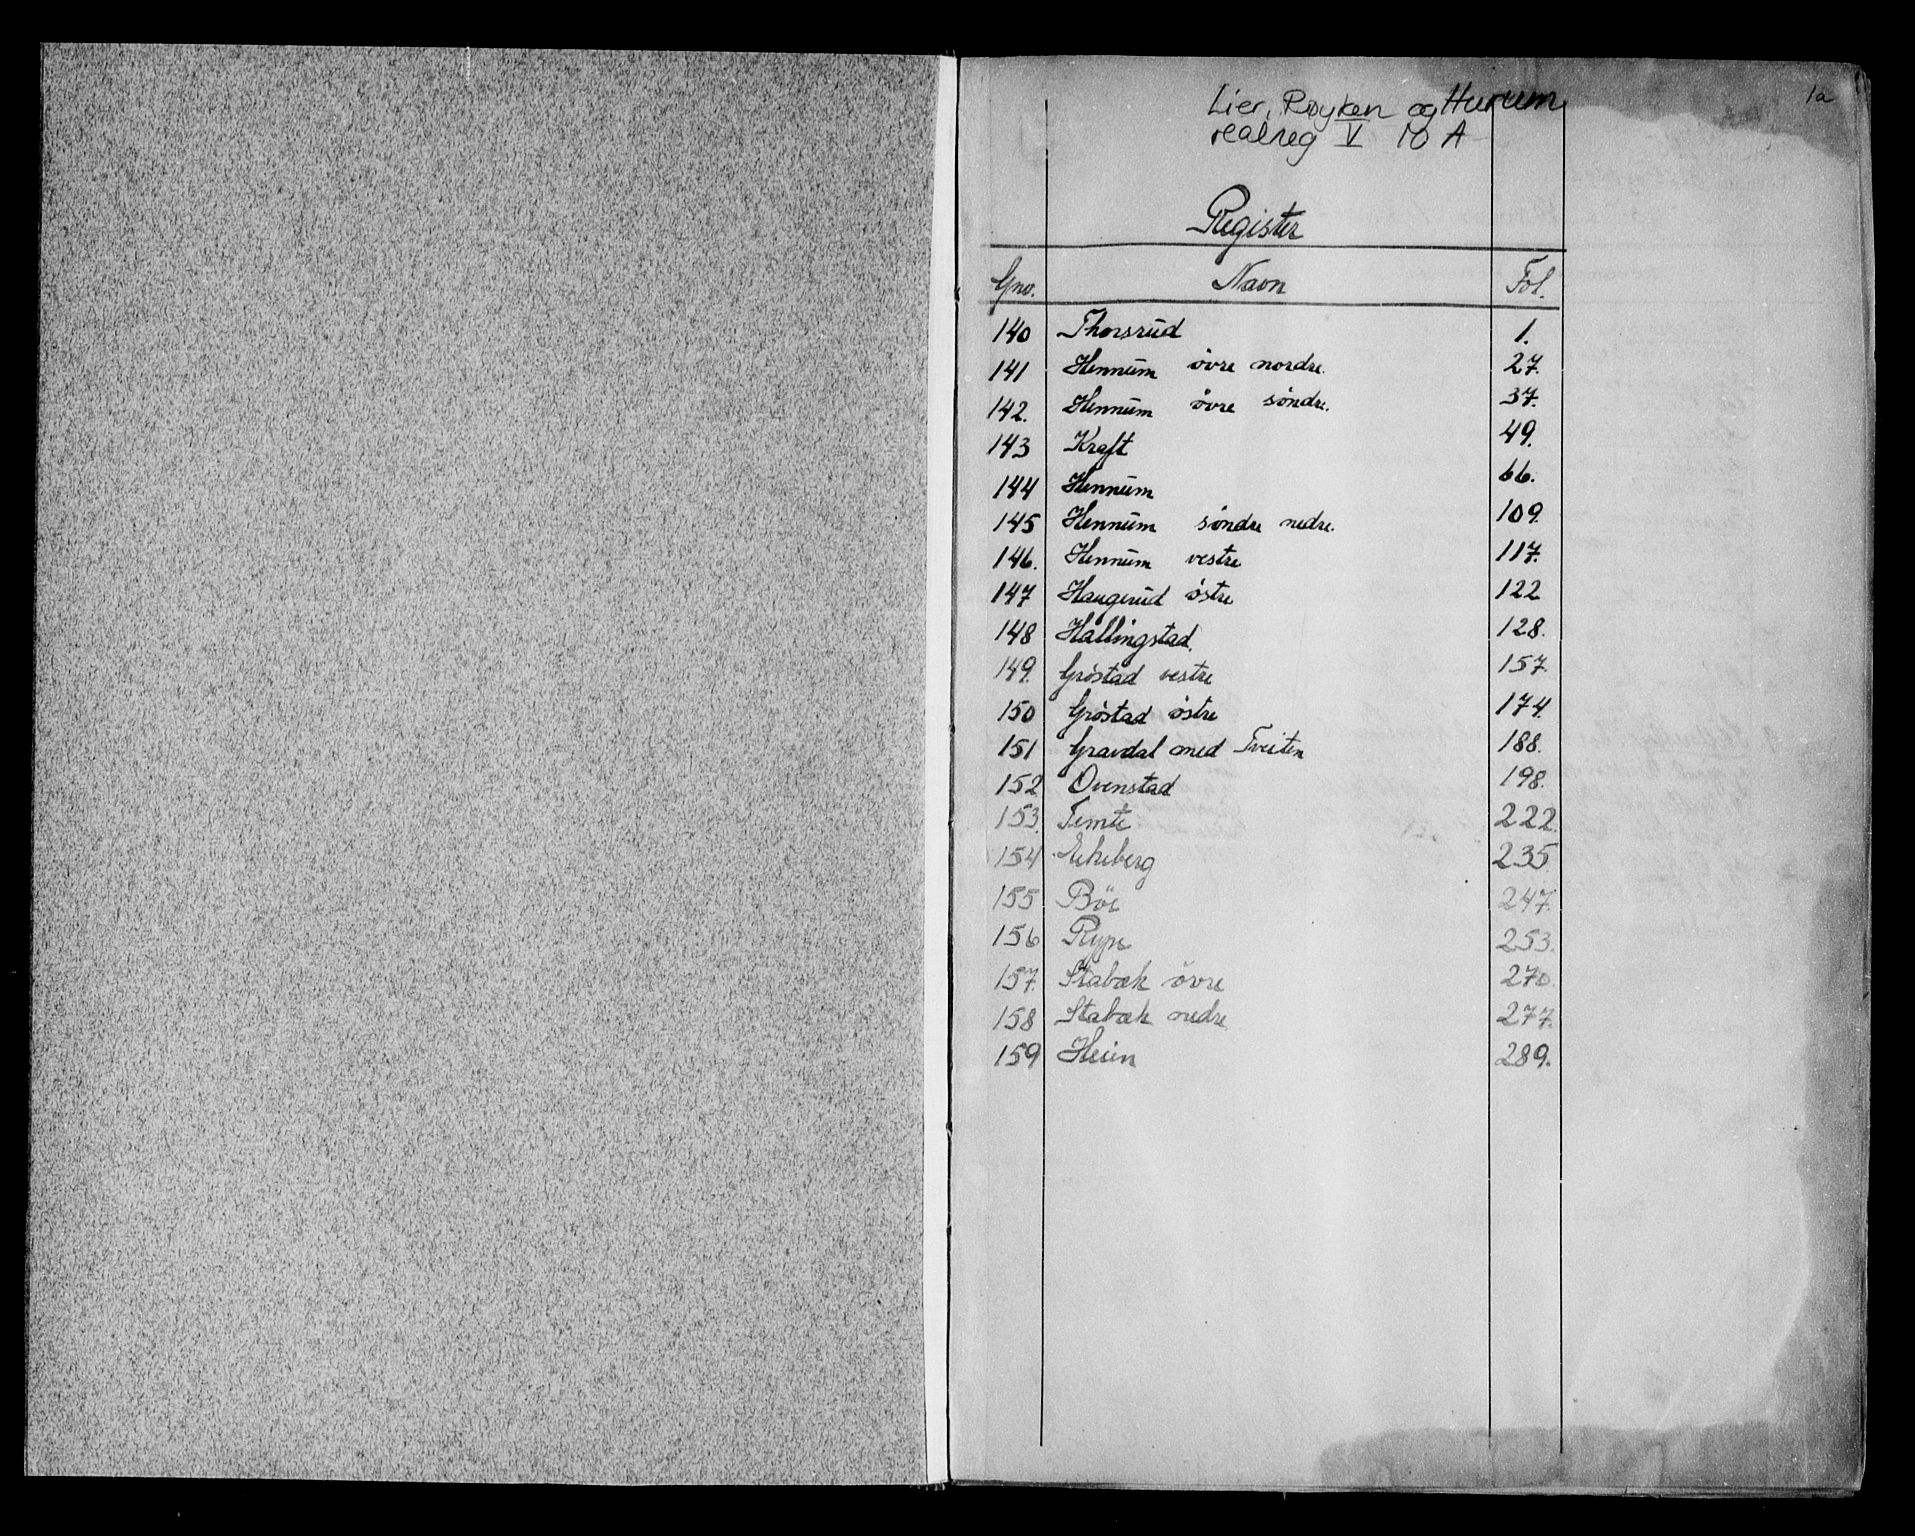 1a
Lier, Røyken og Hurum
realreg V 10 A
Register
Gno. Navn Fol.
140 Thorsrud 1.
141 Hennum övre nordre. 27.
142. Hennum övre söndre. 37.
143 Kraft 49.
144 Hennum 66.
145 Hennum söndre nedre. 109.
146. Hennum vestre 117.
147 Haugerud östre 122
148 Hallingstad. 128.
149. Gröstad vestre 157.
150 Gröstad östre 174.
151 Gravdal med Tveiten 188.
152 Ovenstad 198.
153. Temte 222.
154 Ekeberg 235.
155 Böe 247.
156 Rype 253.
157. Stabæk övre 270.
158 Stabæk nedre 277.
159 Heien 289.